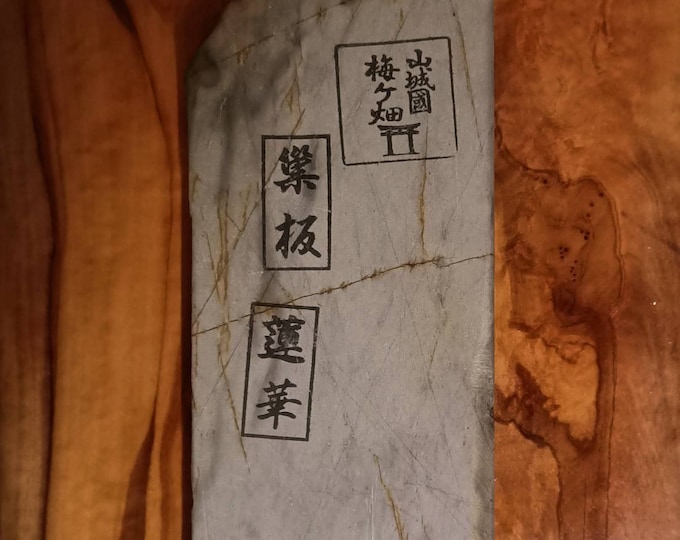 山城國
梅ケ畑
巣板
蓮華